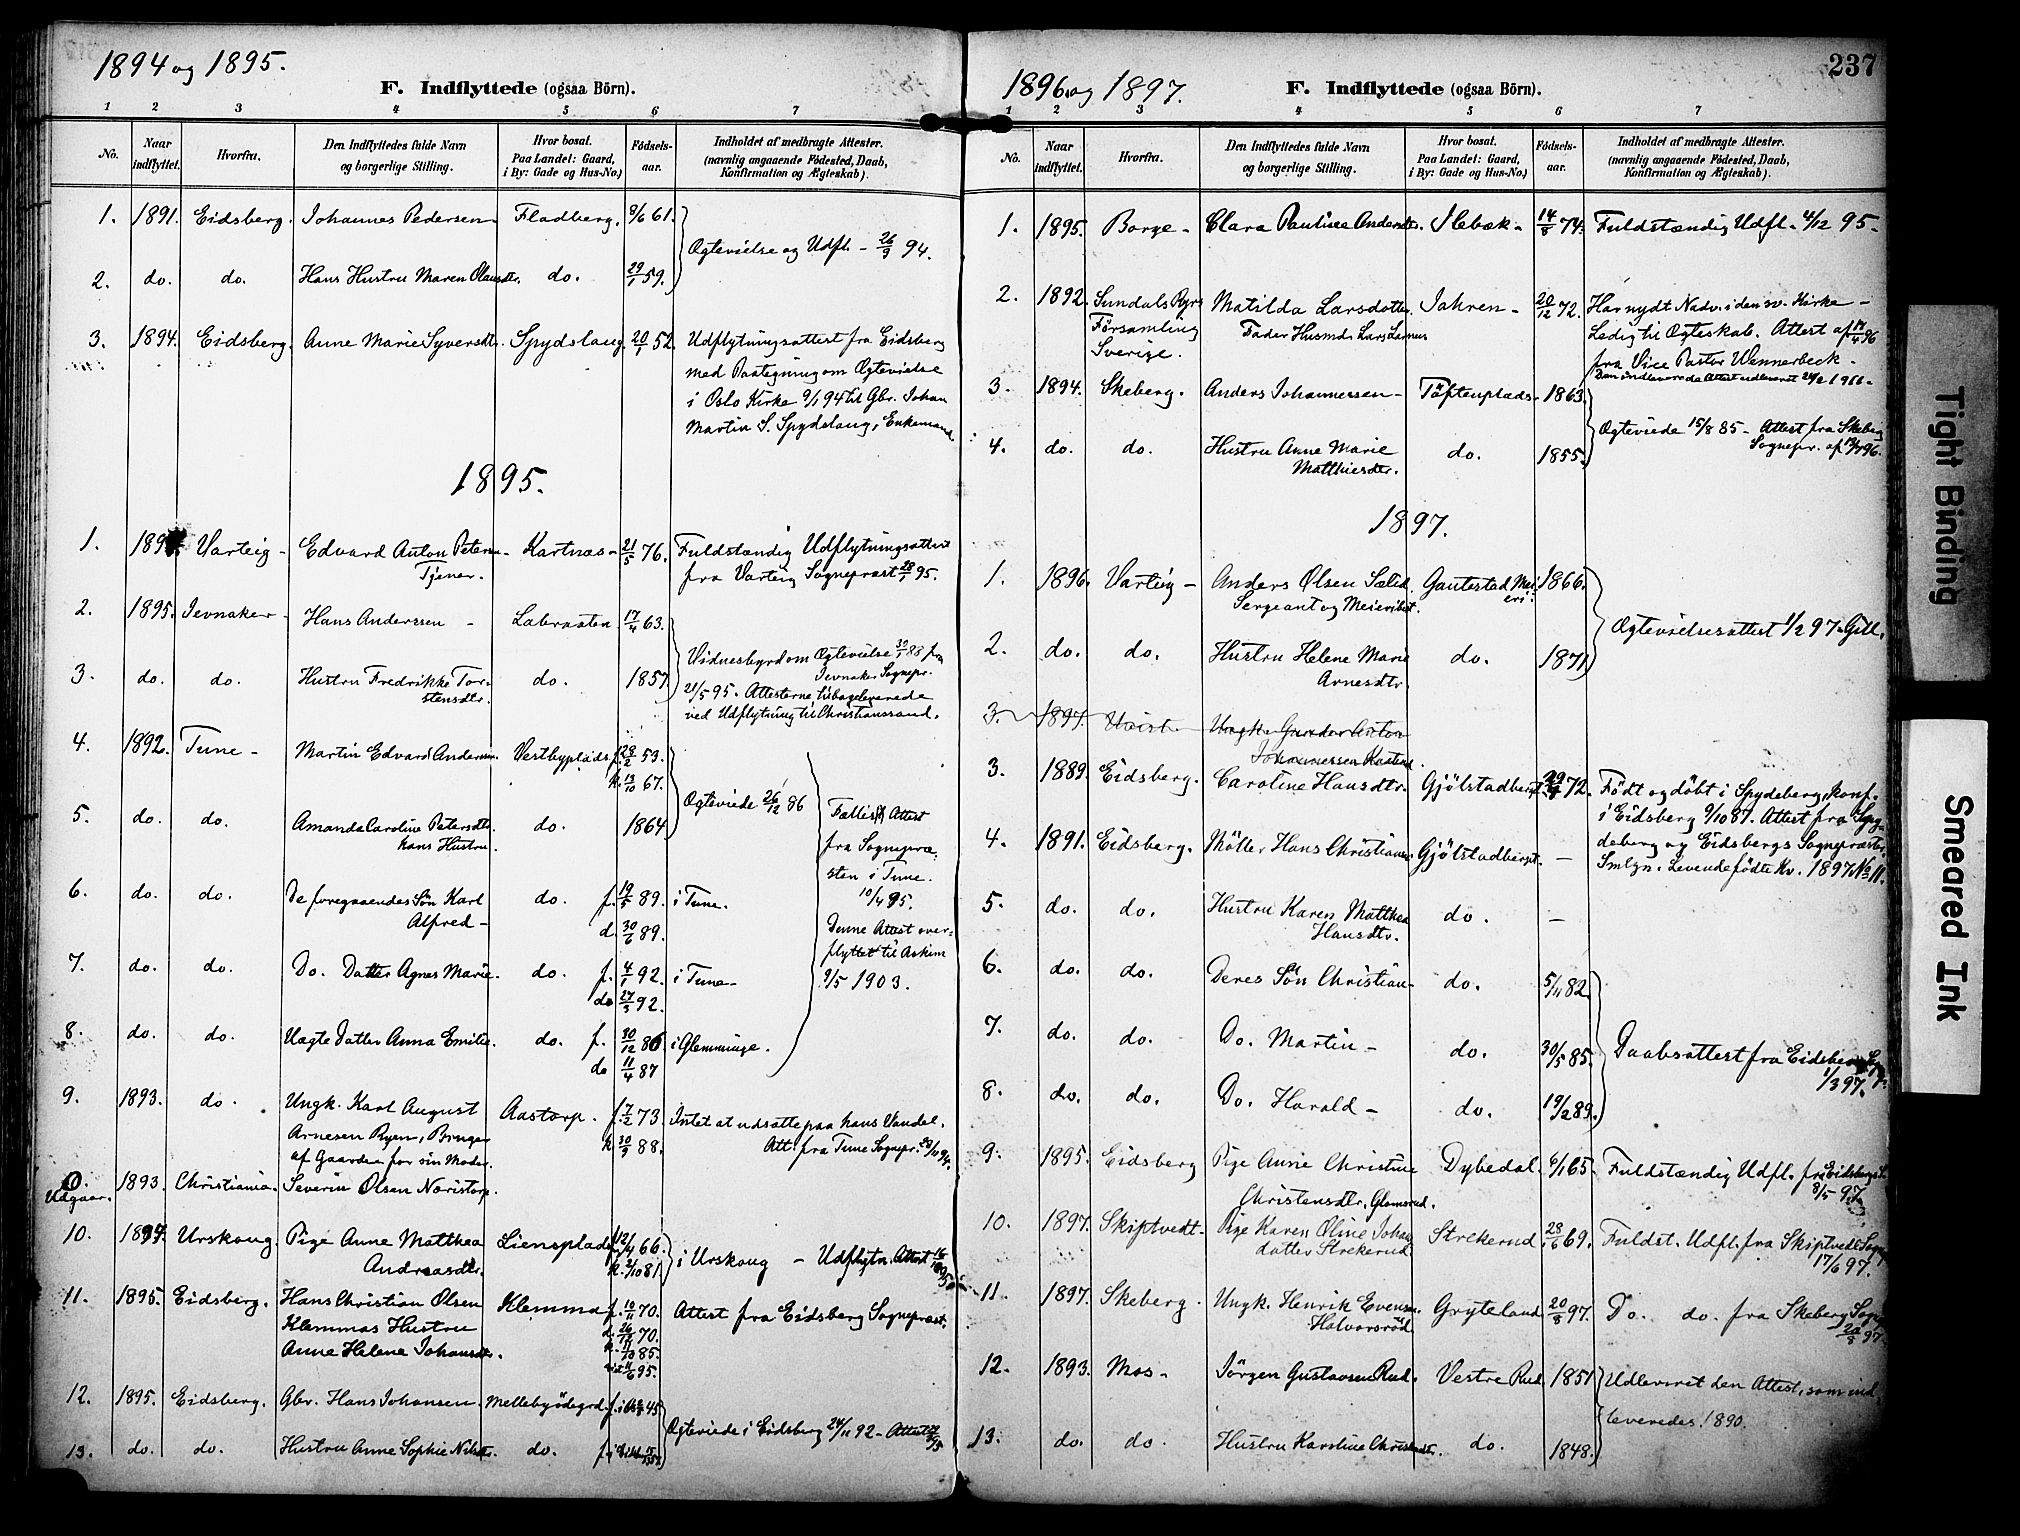 1894 og 1895.
F. Indflyttede (ogsaa Börn).
1 2 3 4 5 6 7
No. Naar indflyttet. Hvorfra. Den Indflyttedes fulde Navn og borgerlige Stilling. Hvor bosat. Paa Landet: Gaard, i By: Gade og Hus-No.) Födsels-aar. Indholdet af medbragte Attester. (navnlig angaaende Födested, Daab, Konfirmation og Ægteskab).
1. 1891. Eidsberg. Johannes Pedersen Fladberg. 9/6 61.
Ægtevielse og Udfl. - 26/3 94.
2. do. do. Hans Hustru Maren Olausdtr. do. 29/1 59.
3. 1894. Eidsberg. Anne Marie Syversdtr. Spydslaug 20/1 52. Udflytningsattest fra Eidsberg
med Paategning om Ægtevielse
i Oslo Kirke 9/1 94 til Gbr. Johan
Martin S. Spydslaug, Enkemand.
1895.
1. Varteig - Edvard Anton Petersen - Kartnæs - 21/5 76. Fuldstændig Udflytningsattest
Tjener. fra Varteig Sognepræst 28/1 95.
2. 1895. Jevnaker - Hans Anderssen - Laberaaten 17/4 63.
Vidnesbyrd om Ægtevielse 30/1 88 fra
Jevnaker Sognepr.
3. do. do. Hustru Fredrikke Tor- do. 1857.
stensdtr. 21/5 95. Attesterne tilbageleverede
ved Udflytning til Christianssand.
4. 1892. Tune - Martin Edvard Andersen. Vestbyplads f. 28/2 53.
k. 13/10 67.
Ægteviede 26/12 86
5. do. do. Amanda Caroline Petersdtr. do. 1864.
hans Hustru.
Fælles Attest
fra Sognepræ-
sten i Tune.
10/4 95.
6. do. do. De foregaaendes Sön Karl do. f. 19/5 89. i Tune.
Alfred - d. 30/6 89.
Denne Attest over-
flyttet til Askim
9/5 1903.
7. do. do. Do. Datter Agnes Marie. do. f. 4/1 92. i Tune -
do 27/3 92.
8. do. do. Uægte Datter Anna Emilie. do. f. 30/12 86 i Glemminge.
do 11/4 87
9. 1893. do. Ungk. Karl August Aastorp. f. 7/2 73 Intet at udsætte paa hans Vandel.
Arnesen Ryen, Bruger k 30/9 88. Att. fra Tune Sognepr. 28/11 94.
af Gaarden for sin Moder.
0. 1893. Christiania. Severin Olsen Næristorp.
Udgaar.
10. 1894. Urskoug. Pige Anne Matthea Liensplads f. 12/4 66. i Urskoug - Udflytn. Attest
Andreasdtr. k. 2/10 81
11. 1895. Eidsberg. Hans Christian Olsen Klemma f. 10/11 70. Attest fra Eidsberg Sognepræst.
Klemmas Hustru d. 26/12 70.
Anne Helene Johansdtr.
12. 1895. Eidsberg. Gbr. Hans Johansen. Mellebyödegrd.
Ægteviede i Eidsberg 24/11 92 - Attest
13. do. do. Hustru Anne Sophie Nilsdtr. do.
237
1896 og 1897.
F. Indflyttede (ogsaa Börn).
1 2 3 4 5 6 7
No. Naar indflyttet. Hvorfra. Den Indflyttedes fulde Navn og borgerlige Stilling. Hvor bosat. Paa Landet: Gaard, i By: Gade og Hus-No.) Födsels-aar. Indholdet af medbragte Attester. (navnlig angaaende Födested, Daab, Konfirmation og Ægteskab).
1. 1895. Borge - Clara Pauline Andersdtr. Ilebæk - 14/8 74. Fuldstændig Udfl. 4/12 95 -
2. 1892. Sundals Ryrs Matilda Larsdotter Jahren - 20/12 72. Har nydt Nadv. i den sv. Kirke -
Församling Fader Husmd. Lars Larsen Ledig til Ægteskab. Attest af 17/4 96
Sverige. fra Vice Pastor Wennerbeck -
3. 1894. Skeberg. Anders Johannessen - Töftenplads - 1863.
Ægteviede 15/8 85 - Attest fra Skeberg
Sognepr.
4. do. do. Hustru Anne Marie do. 1855.
Matthiesdtr.
1897.
1. 1896. Varteig - Anders Olsen Gautestad Mei- 1866.
Sergeant og Meieribest. eri.
Ægtevielsesattest 1/2 97.
2. do. do. Hustru Helene Marie do. 1871.
Arnesdtr.
3. 1897. Ungk. Gunder Anton
Johannessen
3. 1889. Eidsberg. Caroline Hansdtr. Gjölstadberget. 72. Födt og döbt i Spydeberg, konf.
i Eidsberg 9/10 87. Attest fra Spy-
4. 1891. Eidsberg. Möller Hans Christiansen Gjölstadberget. - deberg og Eidsbergs Sognepræster.
Smlgn. Levendefödte Kv. 1897 No 11.
5. do. do. Hustru Karen Matthea do. -
Hansdtr.
6. do. do. Deres Sön Christian - do. 5/11 82.
7. do. do. Do. Martin - do. 30/5 85. Daabsattest fra Eidsberg
1/3 97.
8. do. do. Do. Harald - do. 19/2 89.
9. 1895. Eidsberg Pige Anne Christine Dybedal. 6/1 65. Fuldstændig Udfl. fra Eidsberg
Christensdtr. Glomsrud. 8/5 97.
10. 1897. Skiptvedt - Pige Karen Oline Johan- Strekerud 28/6 69. Fuldst. Udfl. fra Skiptvedt Sogn
datter Strekerud 17/6 97.
11. 1897. Skeberg. Ungk. Henrik Evensen Gryteland 20/8 97. Do. do. fra Skeberg Sogn
Halvorsröd 20/8 97.
12. 1893. Mos - Jörgen Gustavsen Rud. Vestre Rud. 1851 Udleveret den Attest, som ind-
leveredes 1890.
13. do. do. Hustru Karoline do. 1848.
Tight Binding
Smeared Ink